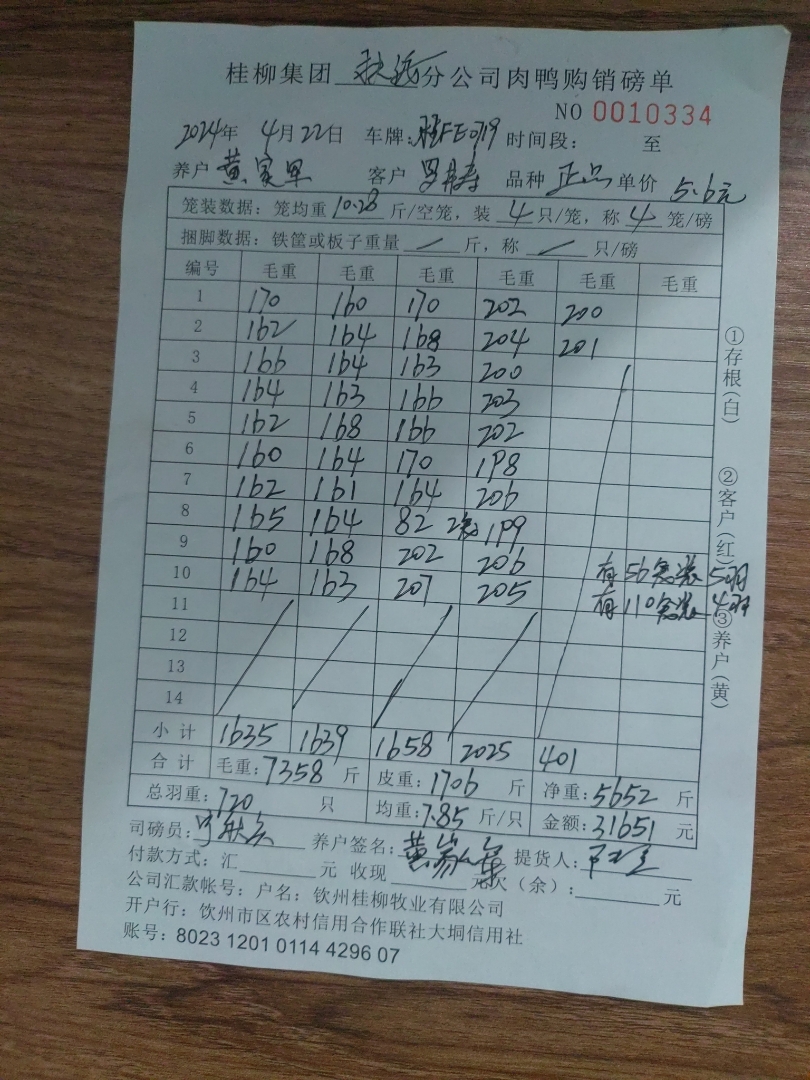 桂柳集团 分公司肉鸭购销磅单
NO 0010334
2024年 4月22日 车牌: 桂FE0719 时间段: 至
养户 黄家军 客户 罗 品种 正品 单价 5.6元
笼装数据: 笼均重 10.28 斤/空笼, 装 4 只/笼, 称 4 笼/磅
捆脚数据: 铁筐或板子重量 / 斤, 称 / 只/磅
编号 毛重 毛重 毛重 毛重 毛重 毛重
1 170 160 170 202 200
2 162 164 168 204 201
3 166 164 163 200
4 164 163 166 203
5 162 168 166 202
6 160 164 170 198
7 162 161 164 206
8 165 164 82 2笼 199
9 160 168 202 206
10 164 163 207 205
有56笼装5羽
有110笼装4羽
11
12
13
14
小计 1635 1639 1658 2025 401
合计 毛重: 7358 斤 皮重: 1706 斤 净重: 5652 斤
总羽重: 720 只 均重: 7.85 斤/只 金额: 31651 元
司磅员: 养户签名: 黄 提货人:
付款方式: 汇 元 收现 元欠(余): 元
公司汇款帐号: 户名: 钦州桂柳牧业有限公司
开户行: 饮州市区农村信用合作联社大垌信用社
账号: 8023 1201 0114 4296 07
①存根(白)
②客户(红)
③养户(黄)